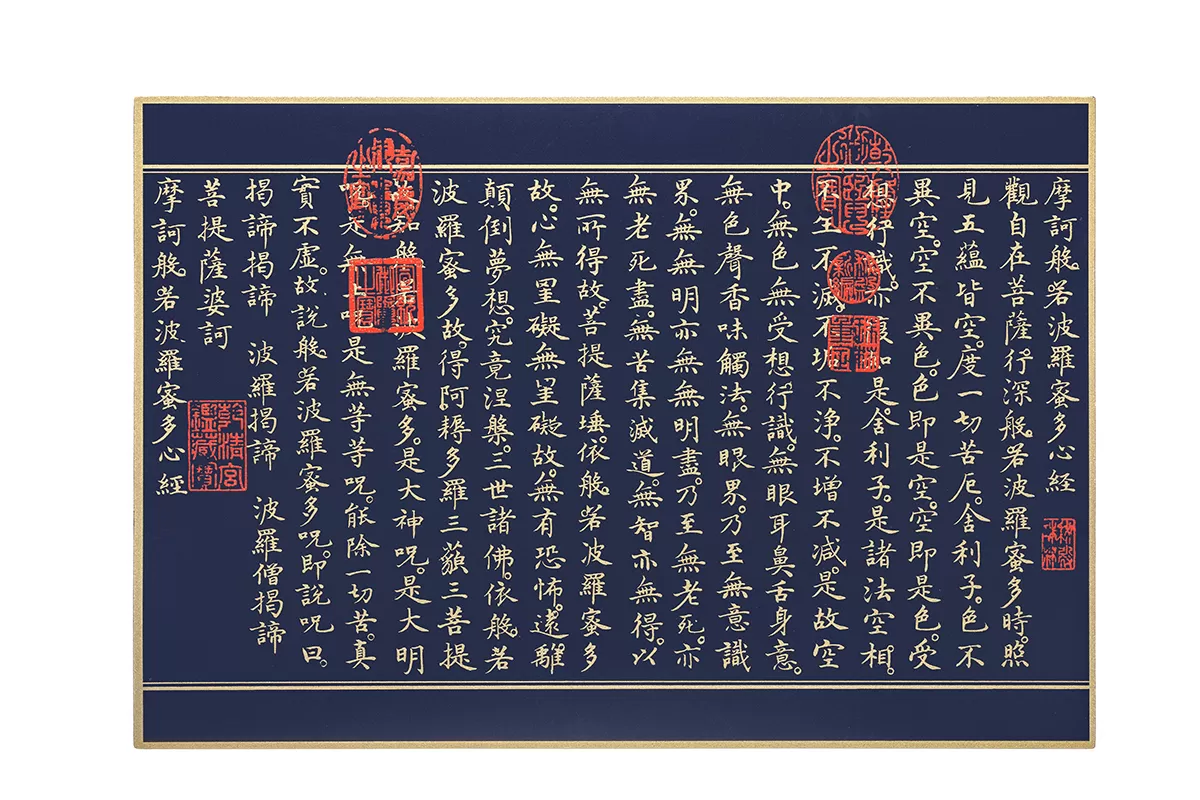 摩訶般若波羅蜜多心經
觀自在菩薩行深般若波羅蜜多時。照
見五蘊皆空。度一切苦厄。舍利子。色不
異空。空不異色。色即是空。空即是色。受
想行識。亦復如是。舍利子。是諸法空相。
不生不滅。不垢不淨。不增不減。是故空
中。無色無受想行識。無眼耳鼻舌身意。
無色聲香味觸法。無眼界。乃至無意識
界。無無明亦無無明盡。乃至無老死。亦
無老死盡。無苦集滅道。無智亦無得。以
無所得故。菩提薩埵。依般若波羅蜜多
故。心無罣礙無罣礙故。無有恐怖。遠離
顛倒夢想。究竟涅槃。三世諸佛。依般若
波羅蜜多故。得阿耨多羅三藐三菩提
故知般若波羅蜜多。是大神呪。是大明
呪是無上呪是無等等呪。能除一切苦。真
實不虛。故說般若波羅蜜多呪。即說呪曰。
揭諦揭諦 波羅揭諦 波羅僧揭諦
菩提薩婆訶
乾清宮鑑藏寶
摩訶般若波羅蜜多心經